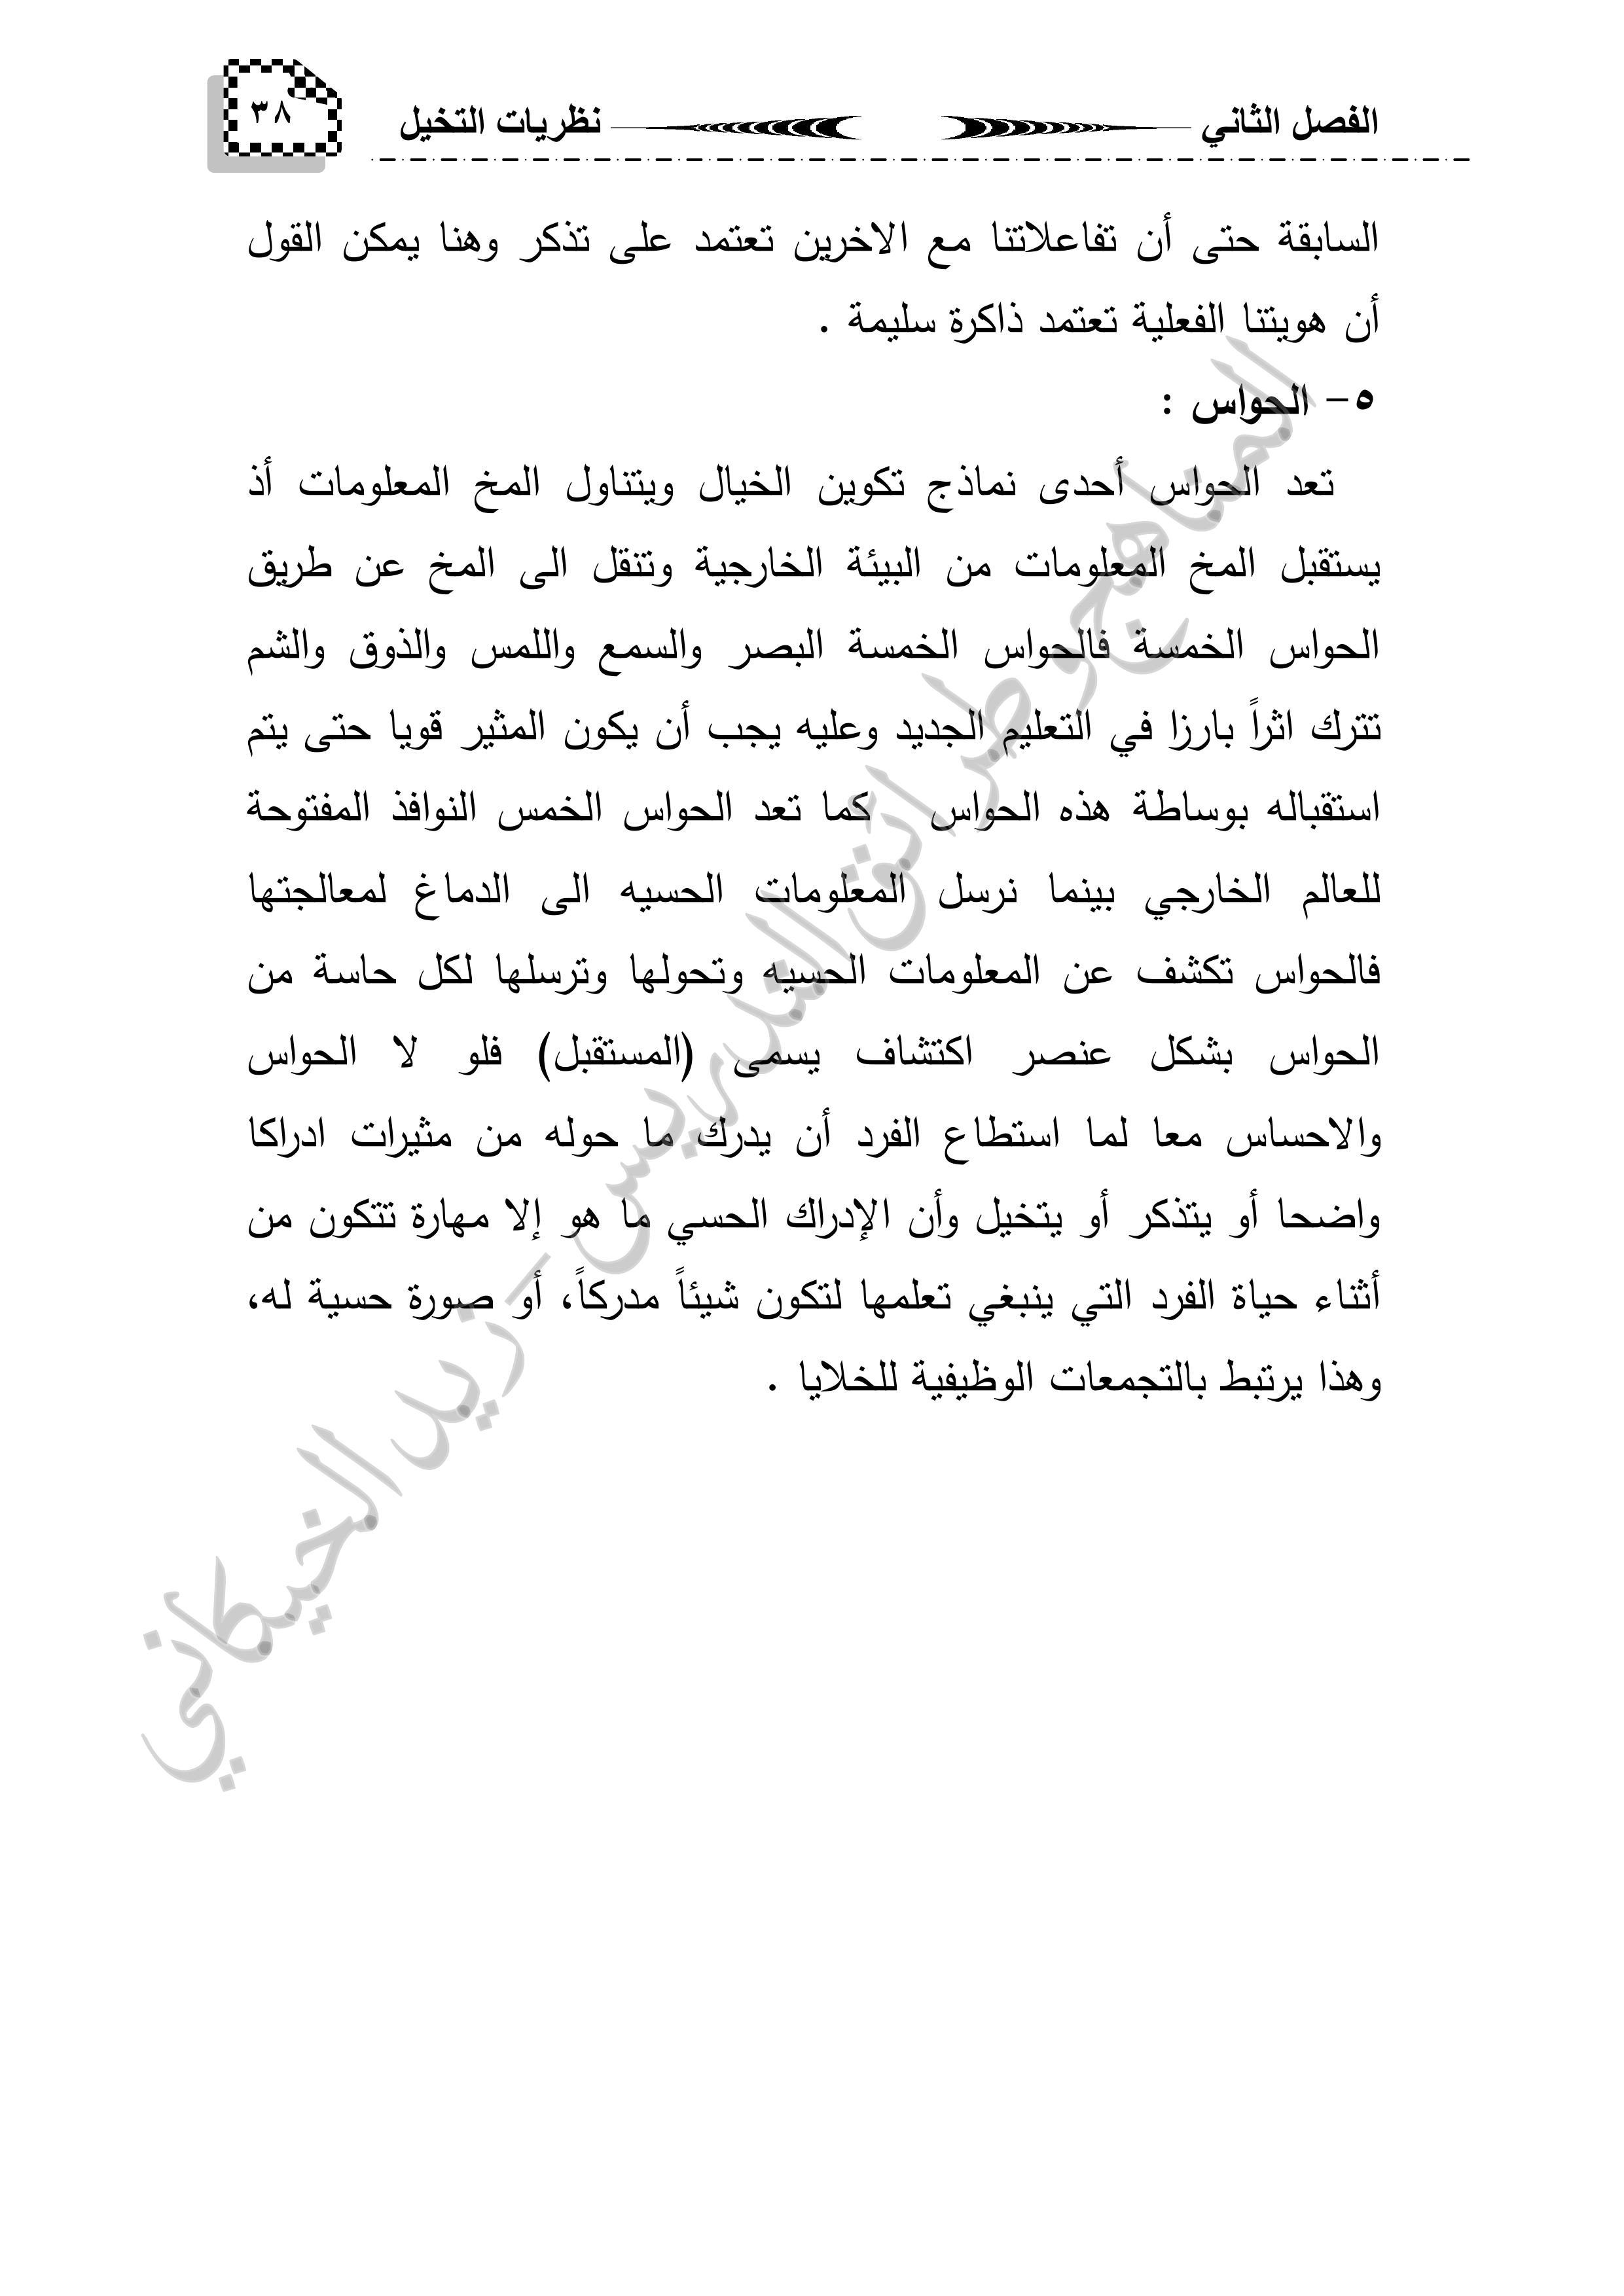 الفصل الثاني نظريات التخيل ٣٨
السابقة حتى أن تفاعلاتنا مع الاخرين تعتمد على تذكر وهنا يمكن القول
أن هويتنا الفعلية تعتمد ذاكرة سليمة .
٥- الحواس :
تعد الحواس أحدى نماذج تكوين الخيال ويتناول المخ المعلومات أذ
يستقبل المخ المعلومات من البيئة الخارجية وتنقل الى المخ عن طريق
الحواس الخمسة فالحواس الخمسة البصر والسمع واللمس والذوق والشم
تترك اثراً بارزا في التعليم الجديد وعليه يجب أن يكون المثير قويا حتى يتم
استقباله بوساطة هذه الحواس كما تعد الحواس الخمس النوافذ المفتوحة
للعالم الخارجي بينما نرسل المعلومات الحسيه الى الدماغ لمعالجتها
فالحواس تكشف عن المعلومات الحسيه وتحولها وترسلها لكل حاسة من
الحواس بشكل عنصر اكتشاف يسمى (المستقبل) فلو لا الحواس
والاحساس معا لما استطاع الفرد أن يدرك ما حوله من مثيرات ادراكا
واضحا أو يتذكر أو يتخيل وأن الإدراك الحسي ما هو إلا مهارة تتكون من
أثناء حياة الفرد التي ينبغي تعلمها لتكون شيئاً مدركاً، أو صورة حسية له،
وهذا يرتبط بالتجمعات الوظيفية للخلايا .
المناهج وطرائق التدريس - زيد الخيكاني